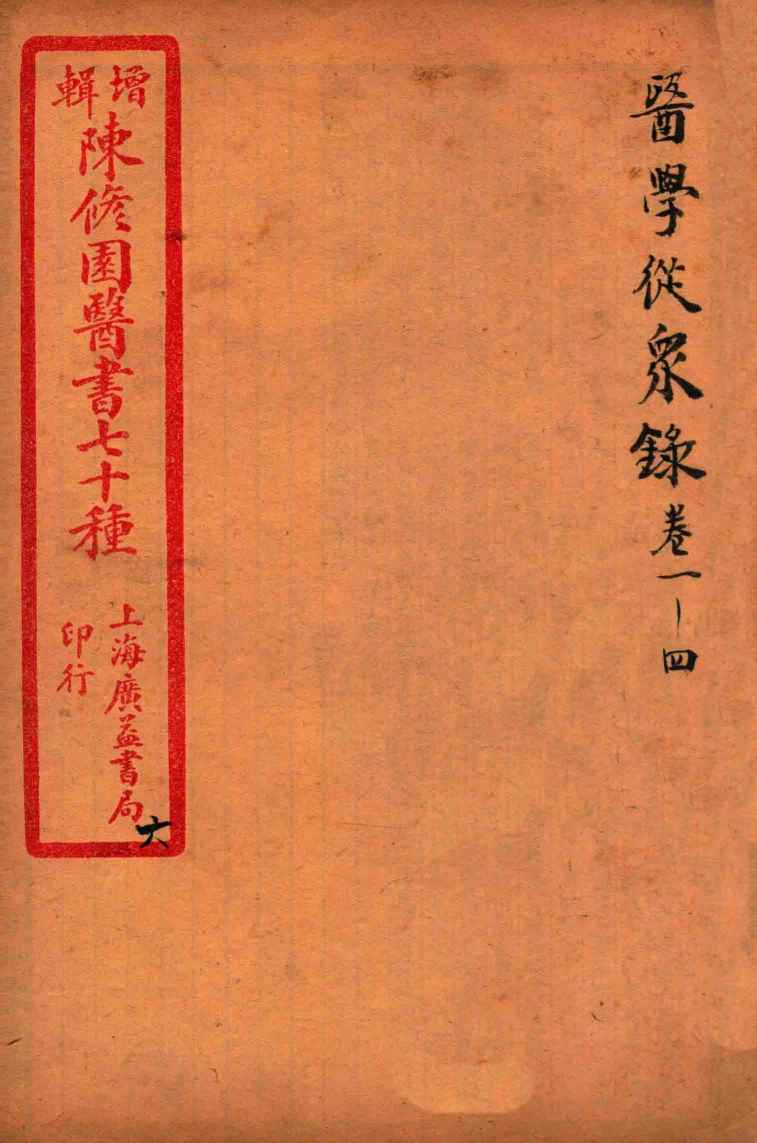 醫學從眾錄 卷一－四
增輯
陳修園醫書七十種
上海廣益書局
印行
六